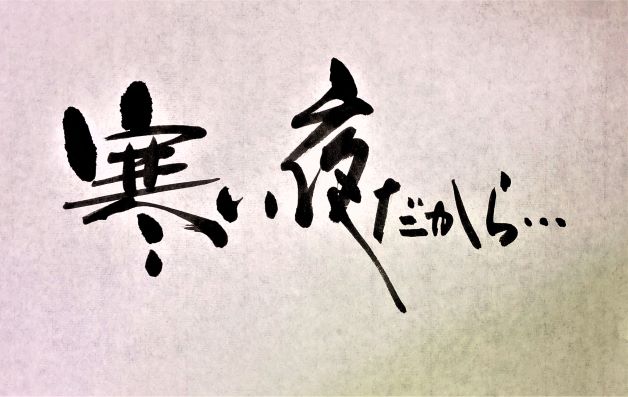 寒い夜だから…